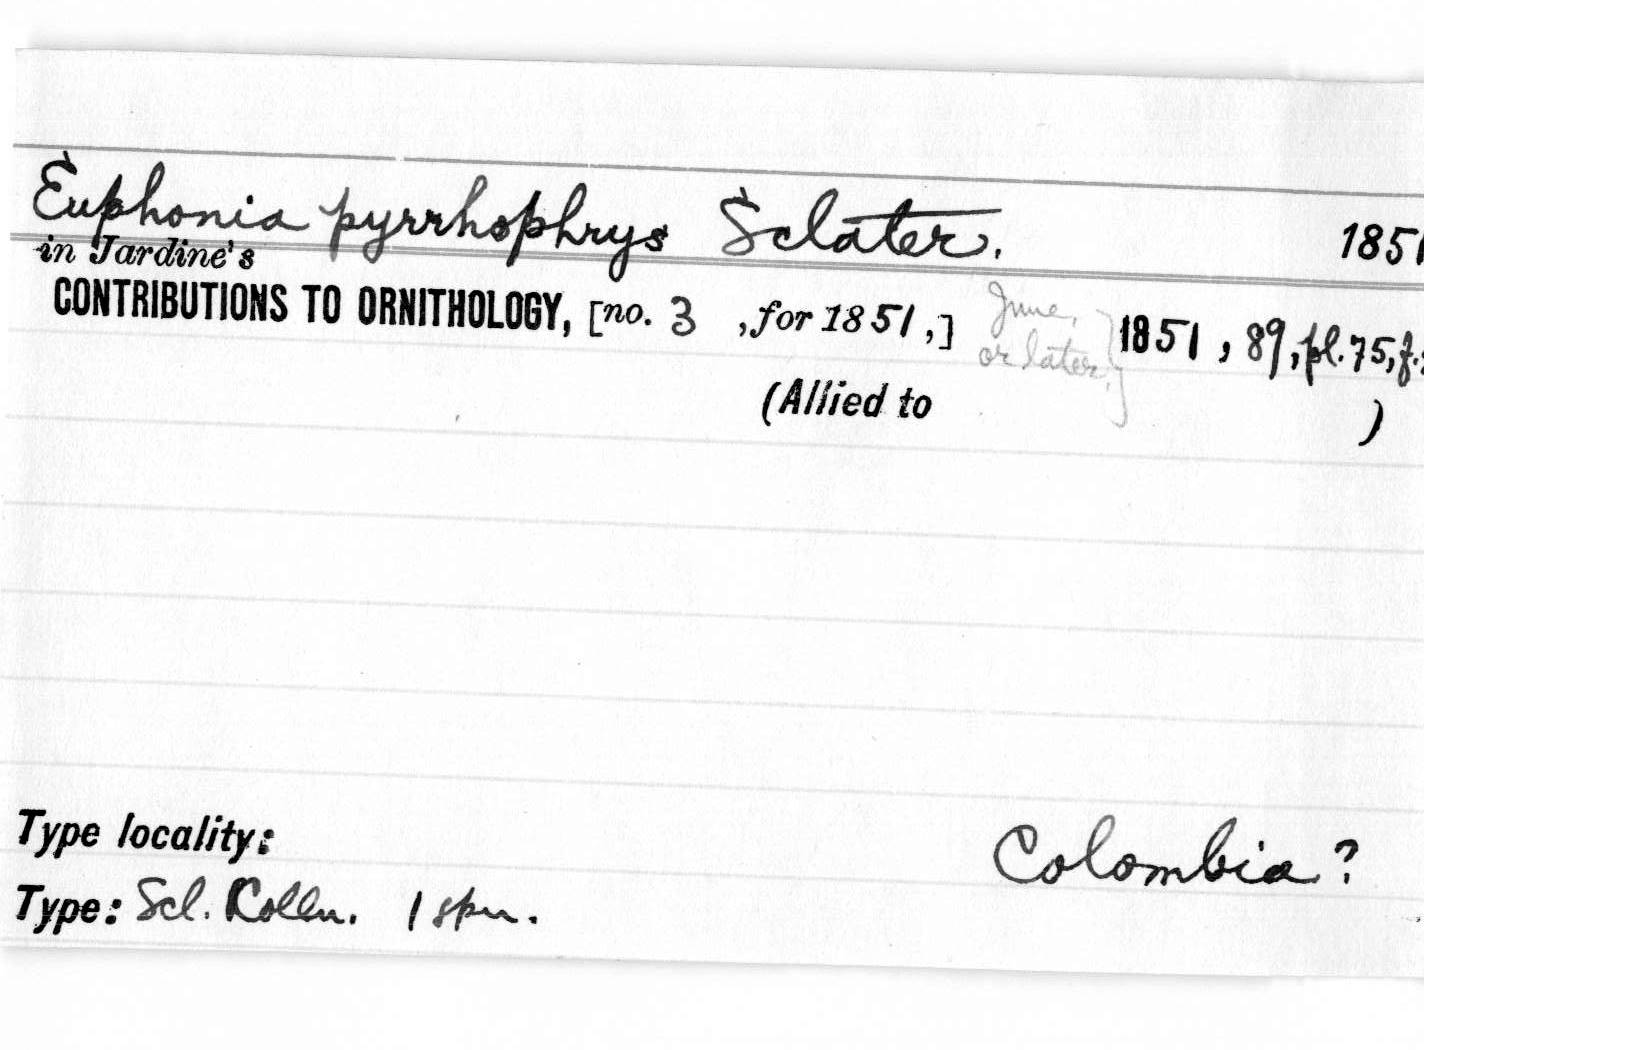 Euphonia pyrrhophrys Sclater. 1851
in Jardine's
CONTRIBUTIONS TO ORNITHOLOGY, [no. 3 , for 1851,] June, or later, } 1851, 89, pl. 75, f.
(Allied to )
Type locality: Colombia?
Type: Scl. Colln. 1 spn.